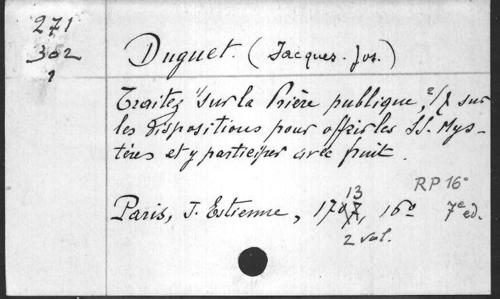 271
302
1
Duguet. (Jacques. Jos.)
Traitez 1/ sur la Prière publique, 2/ sur
les dispositions pour offrir les SS. Mys-
tères et y participer avec fruit.
RP 16°
13
Paris, J. Estienne, 1707, 16° 7e ed.
2 vol.